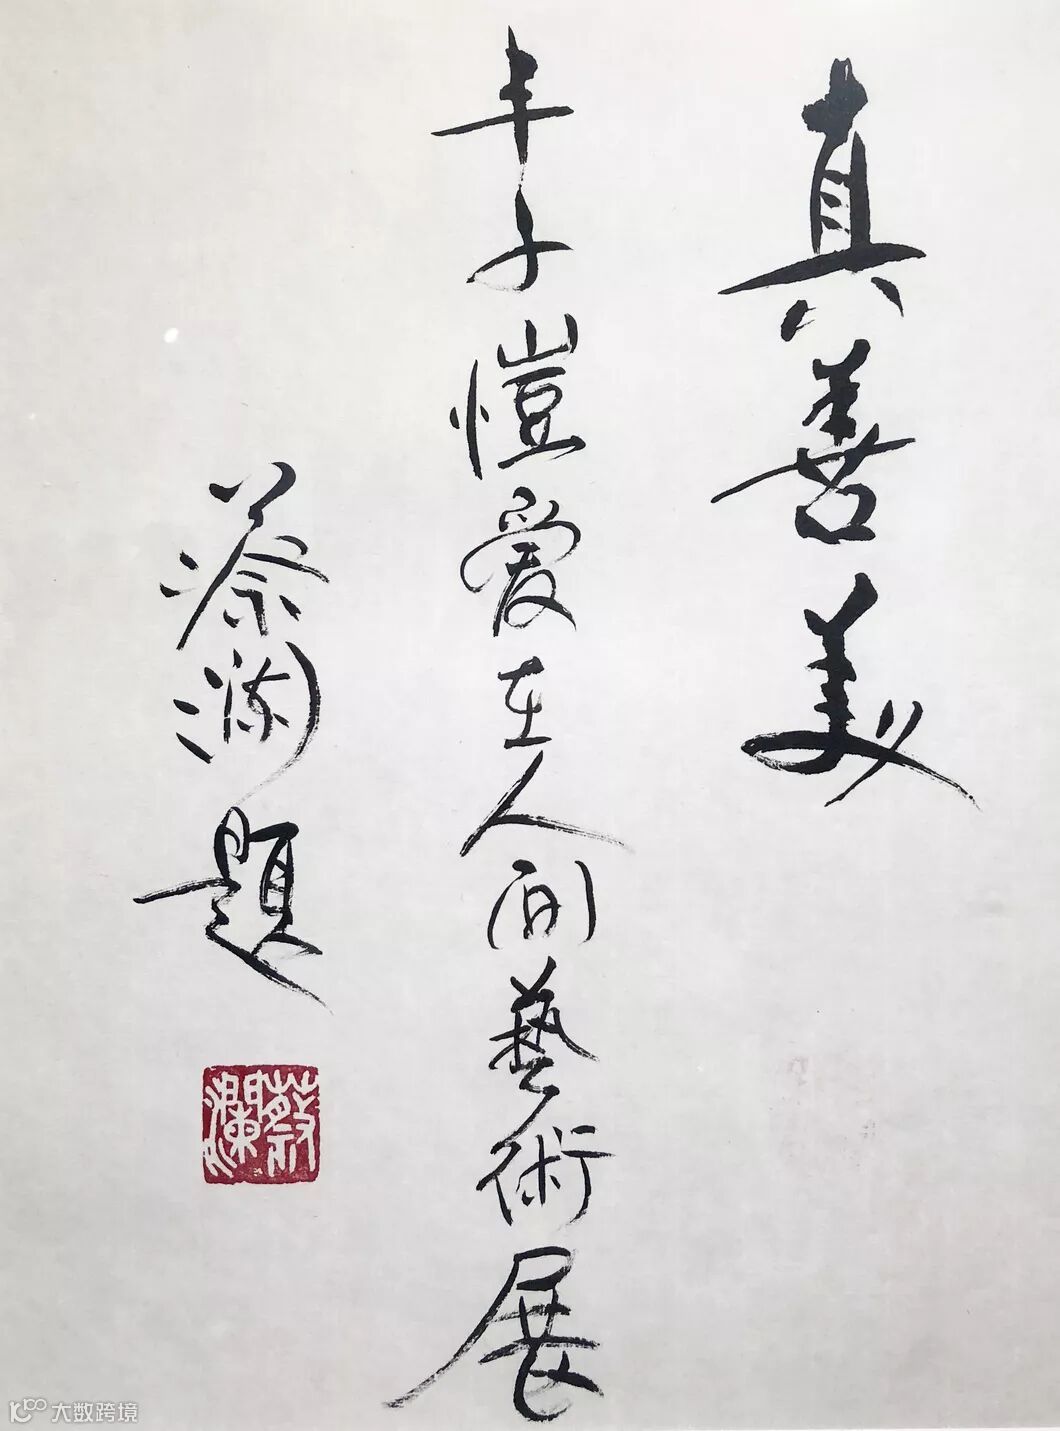 真善美
丰子愷爱在人间藝術展
蔡澜題
蔡瀾
大数跨境